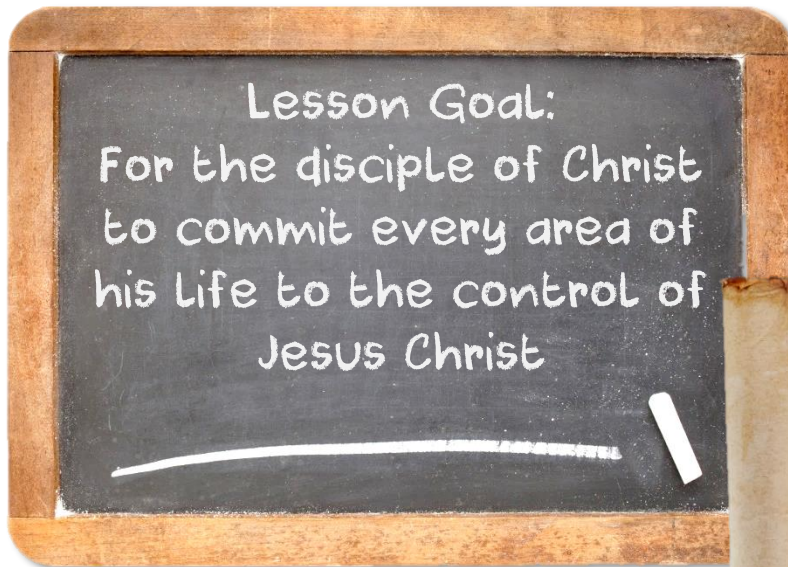 Lesson Goal:
For the disciple of Christ
to commit every area of
his life to the control of
Jesus Christ